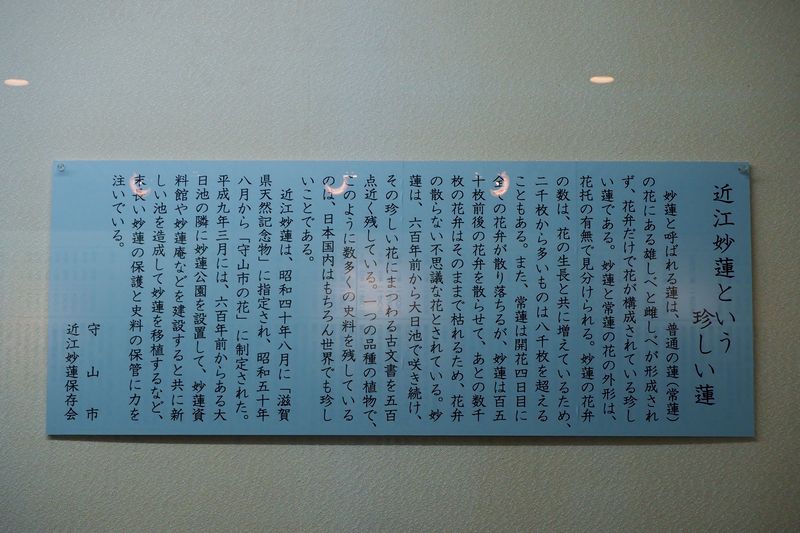 近江妙蓮という
珍しい蓮
妙蓮と呼ばれる蓮は、普通の蓮(常蓮)
の花にある雄しべと雌しべが形成され
ず、花弁だけで花が構成されている珍し
い蓮である。妙蓮と常蓮の花の外形は、
花托の有無で見分けられる。妙蓮の花弁
の数は、花の生長と共に増えているため、
二千枚から多いものは八千枚を超える
こともある。また、常蓮は開花四日目に
全ての花弁が散り落ちるが、妙蓮は百五
十枚前後の花弁を散らせて、あとの数千
枚の花弁はそのままで枯れるため、花弁
の散らない不思議な花とされている。妙
蓮は、六百年前から大日池で咲き続け、
その珍しい花にまつわる古文書を五百
点近く残している。一つの品種の植物で、
このように数多くの史料を残している
のは、日本国内はもちろん世界でも珍し
いことである。
近江妙蓮は、昭和四十年八月に「滋賀
県天然記念物」に指定され、昭和五十年
八月から「守山市の花」に制定された。
平成九年三月には、六百年前からある大
日池の隣に妙蓮公園を設置して、妙蓮資
料館や妙蓮庵などを建設すると共に新
しい池を造成して妙蓮を移植するなど、
末長い妙蓮の保護と史料の保管に力を
注いでいる。
守山市
近江妙蓮保存会